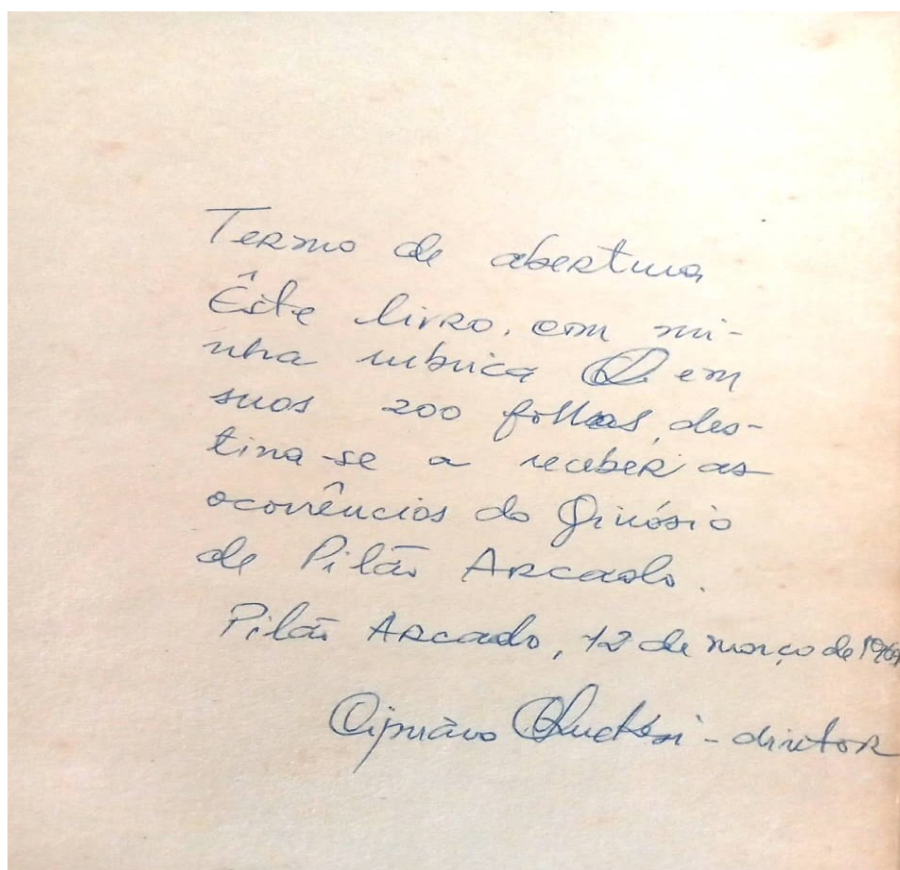 Termo de abertura
Êste livro, com mi-
nha rubrica em
suas 200 folhas, des-
tina-se a receber as
ocorrências do Ginásio
de Pilão Arcado.
Pilão Arcado, 12 de março de
Cipriano Luckesi - diretor